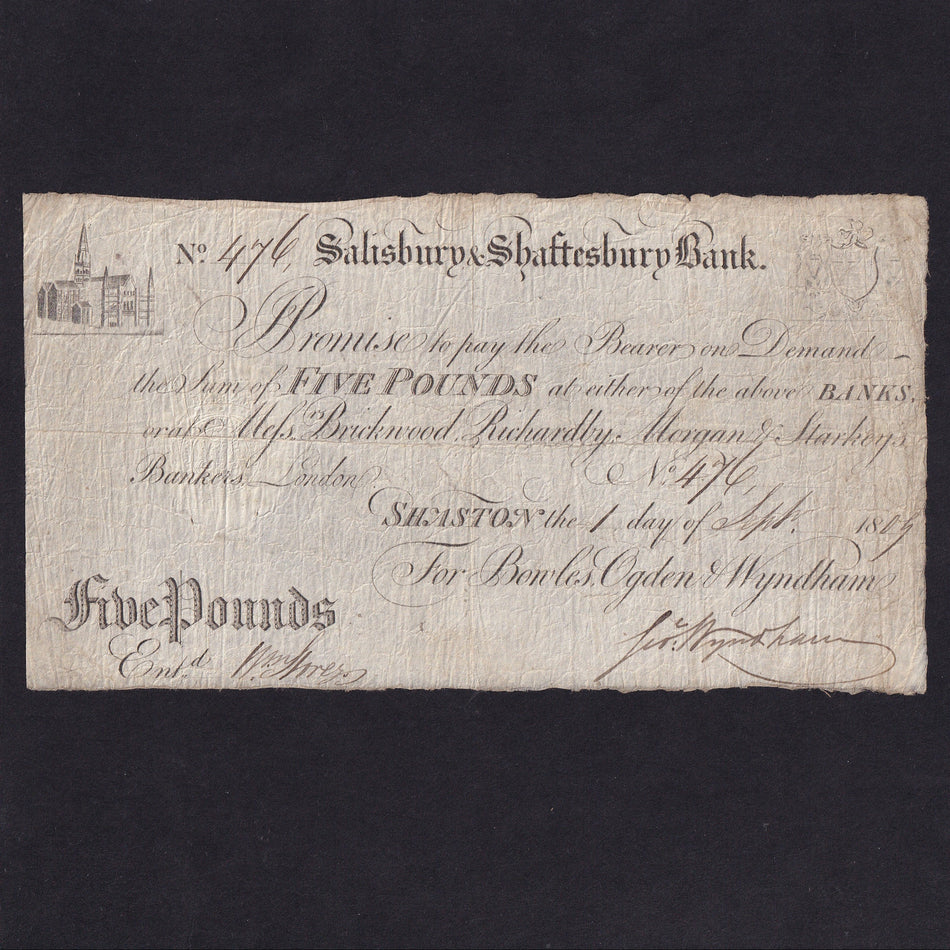 No. 476, Salisbury & Shaftesbury Bank.
I Promise to pay the Bearer on Demand
the Sum of FIVE POUNDS at either of the above BANKS,
or at Messrs. Brickwood, Richardby, Morgan & Starkey's
Bankers, London. No. 476,
SHASTON the 1 day of Sept. 1809
For Bowles, Ogden & Wyndham
Five Pounds
Geo. Wyndham
Entd. Wm.